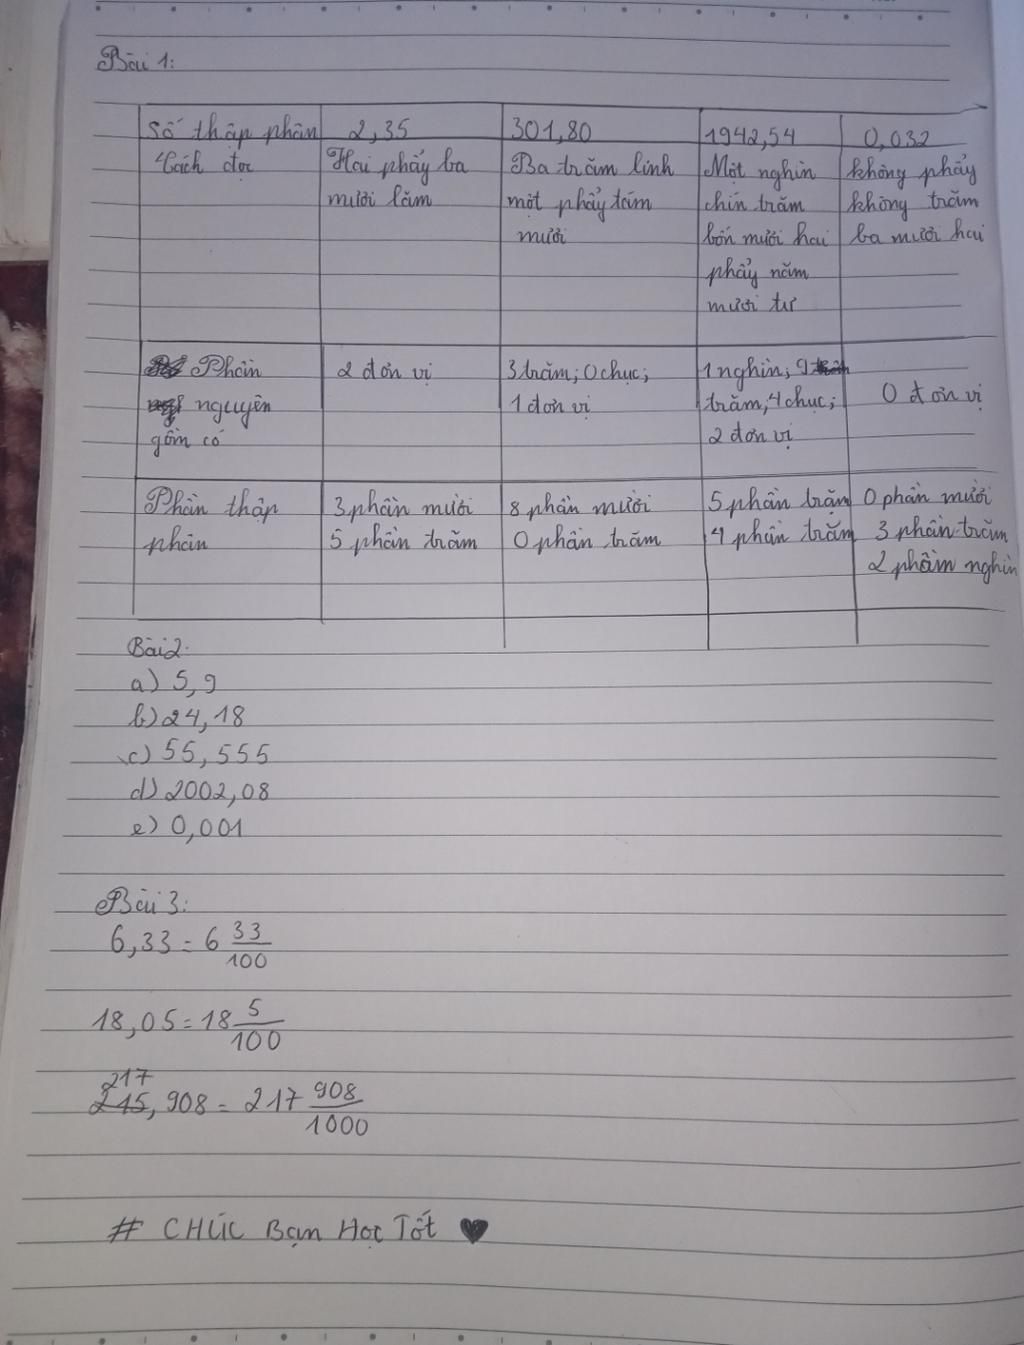 Bài 1:
Số thập phân 2,35 301,80 1942,54 0,032
Cách đọc Hai phẩy ba Ba trăm linh Một nghìn không phẩy
mươi lăm một phẩy tám chín trăm không trăm
mươi bốn mươi hai ba mươi hai
phẩy năm
mươi tư
Phần 2 đơn vị 3 trăm; 0 chục; 1 nghìn; 9
nguyên 1 đơn vị trăm, 4 chục; 0 đơn vị
gồm có 2 đơn vị
Phần thập 3 phần mười 8 phần mười 5 phần trăm 0 phần mười
phân 5 phần trăm 0 phần trăm 4 phần trăm 3 phần trăm
2 phầm nghìn
Bài 2:
a) 5,9
b) 24,18
c) 55,555
d) 2002,08
e) 0,001
Bài 3:
6,33 = 6 33/100
18,05 = 18 5/100
217
215, 908 = 217 908/1000
# CHÚC Bạn Học Tốt ♥